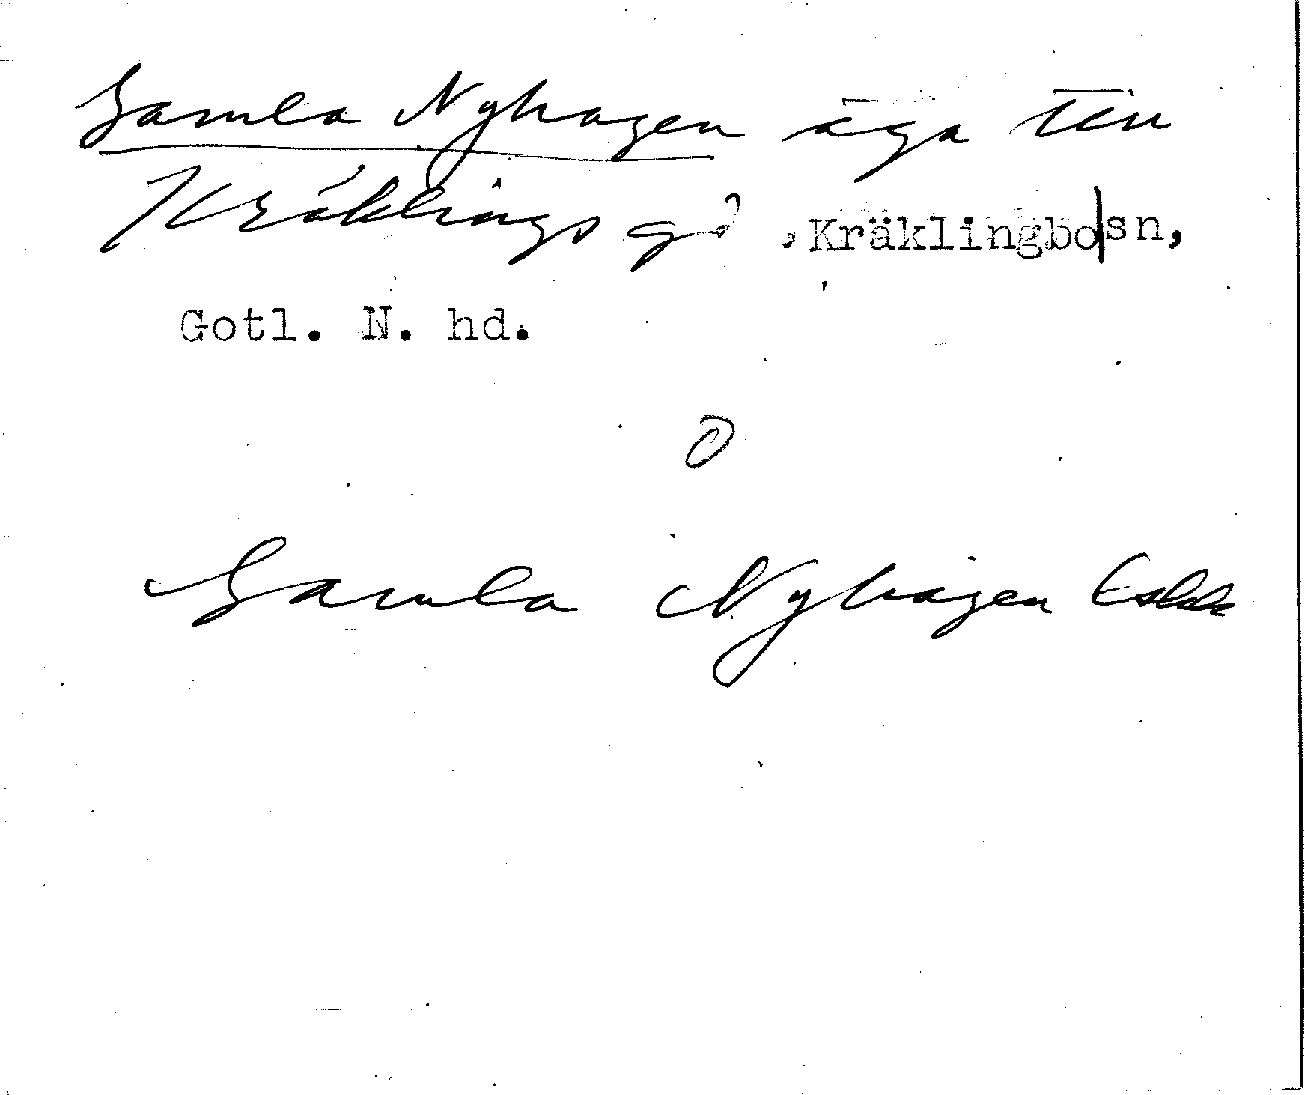 Gamla Nyhagen äga till
Kräklings gd, Kräklingbo sn,
Gotl. N. hd.
Gamla Nyhagen Eskk